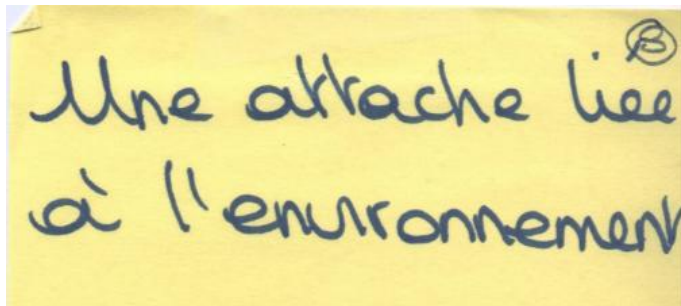 B
Une attache liee
à l'environnement